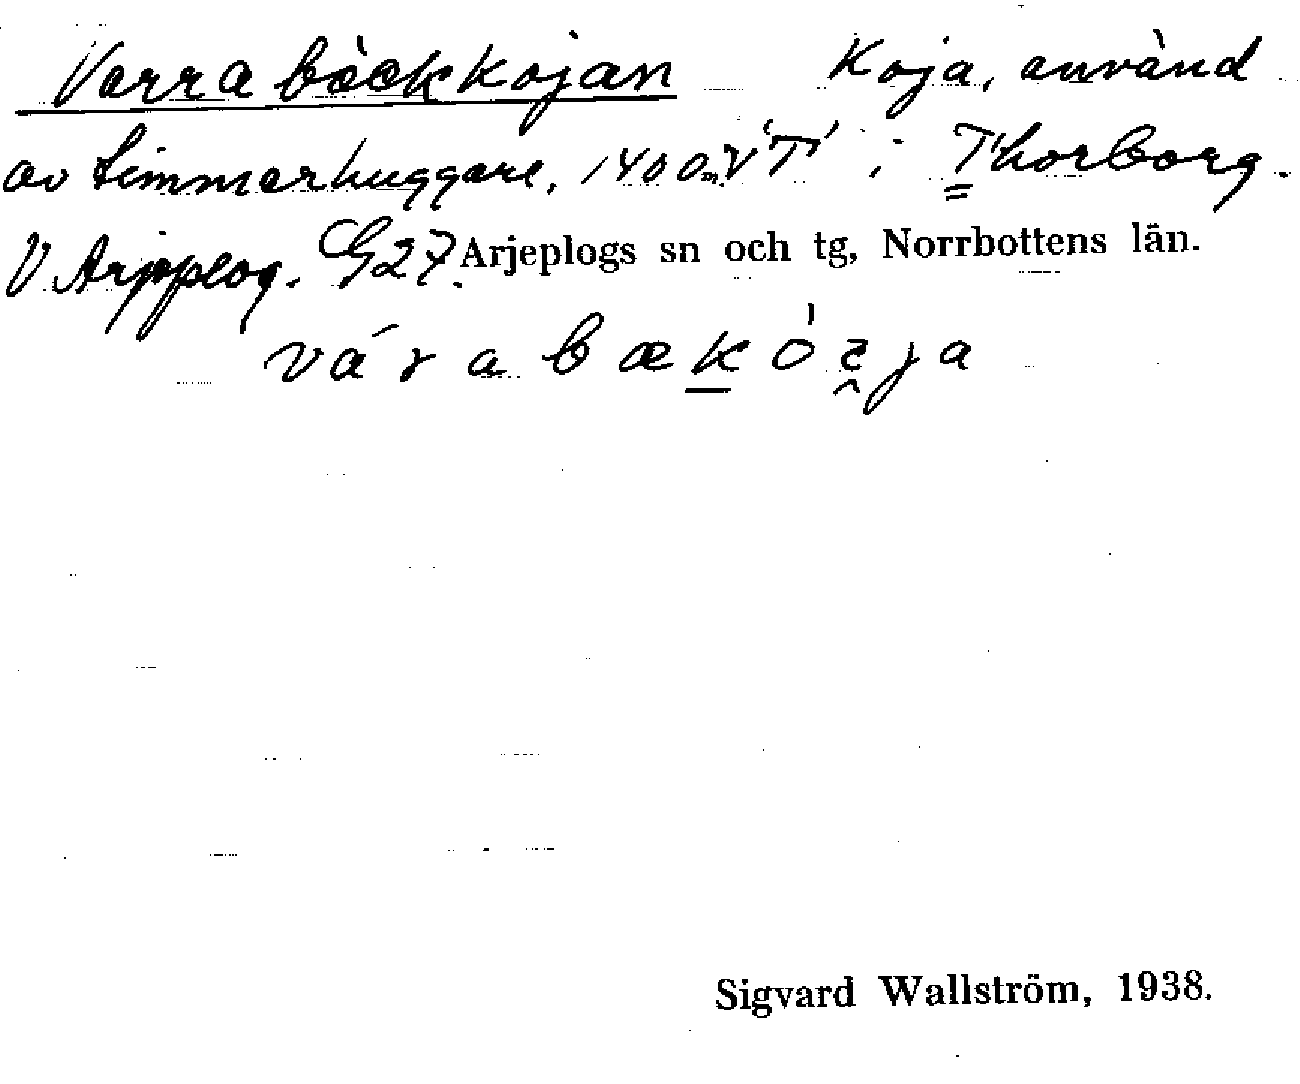 Varrabäckkojan Koja, använd
av timmerhuggare, 1400 m V "T" i Thorborg.
V Arjeplog. G27. Arjeplogs sn och tg, Norrbottens län.
várabækóɛja
Sigvard Wallström, 1938.